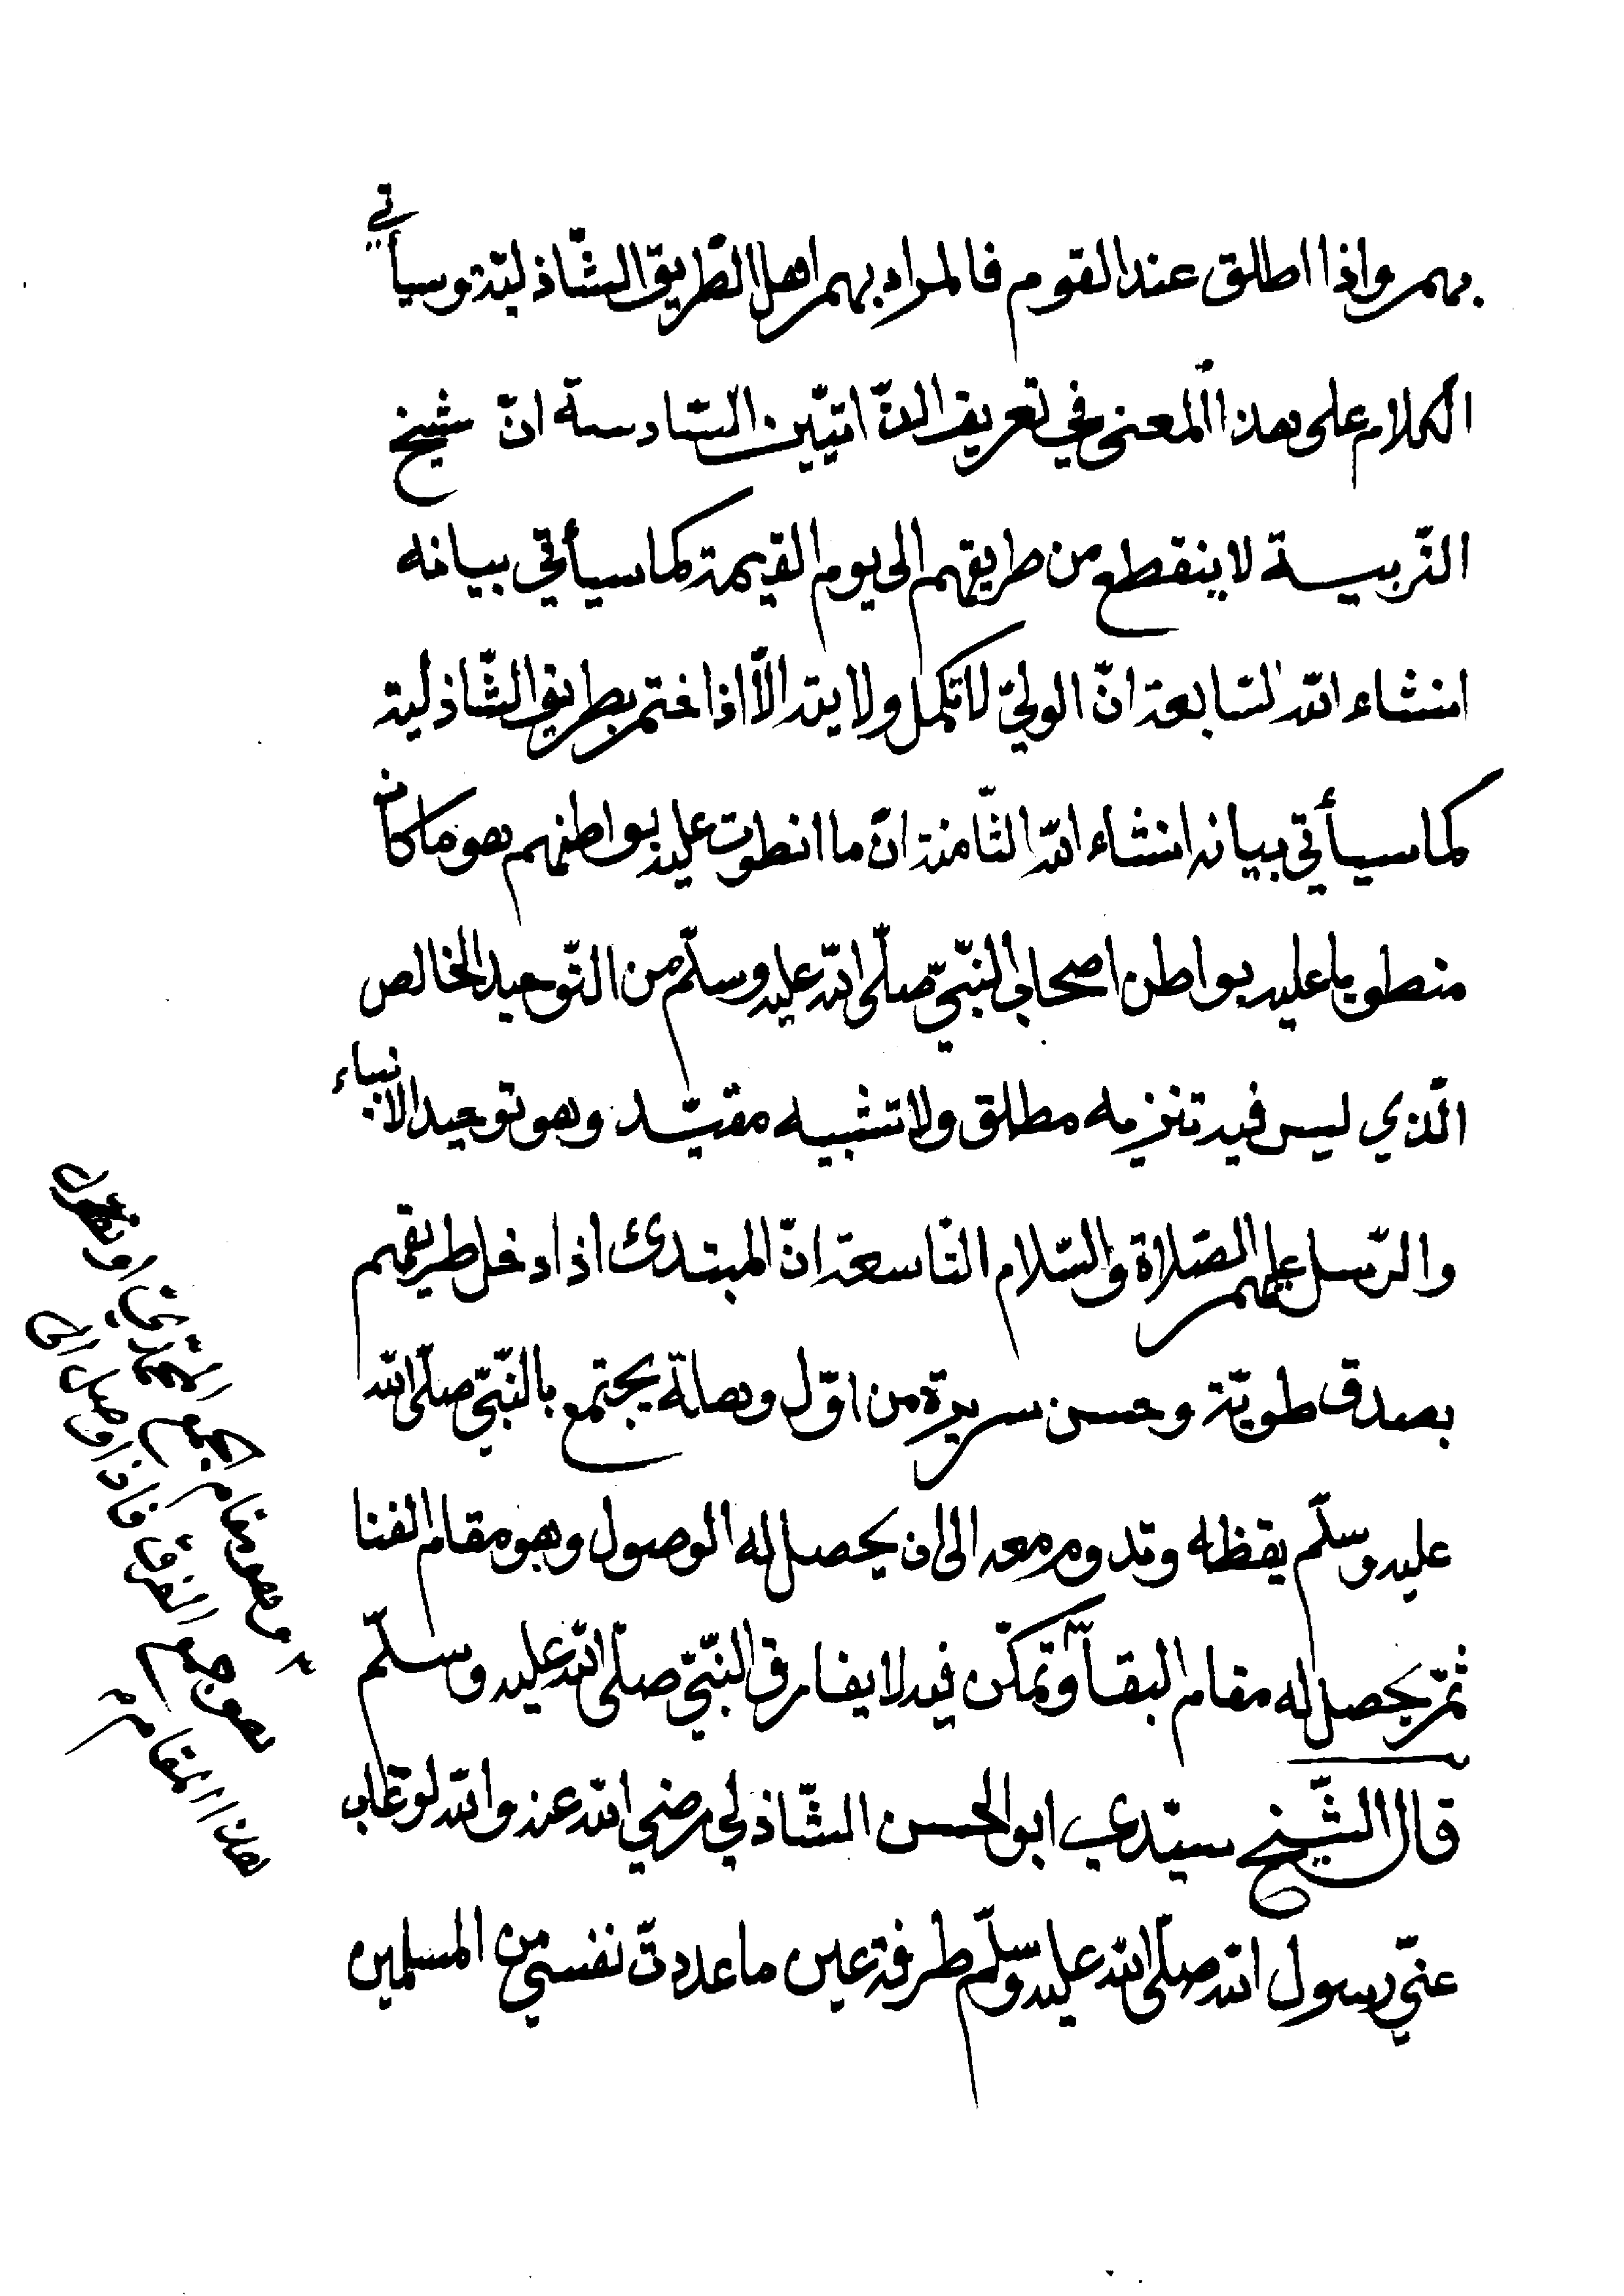 بهم واذا اطلق عند القوم فالمراد بهم اهل الطّريق الشّاذليّة وسيأتي
الكلام على هذا المعنى في تعريف الذّاتيّين السّادسة انّ شيخ
التّربية لا ينقطع من طريقهم الى يوم القيمة كما سيأتي بيانه
انشاء الله السّابعة انّ الوليّ لا تكمل ولايته الّا اذا ختم بطريق الشّاذلية
كما سيأتي بيانه انشاء الله الثّامنة انّ ما انطوت عليه بواطنهم هو ما كان
منطويا عليه بواطن اصحاب النّبيّ صلّى الله عليه وسلّم من التّوحيد الخالص
الّذي ليس فيه تنزيه مطلق ولا تشبيه مقيّد وهو توحيد الانبياء
والرّسل عليهم الصّلاة والسّلام التّاسعة انّ المبتدئ اذا دخل طريقهم
بصدق طويّة وحسن سريرة من اوّل وهلة يجتمع بالنّبيّ صلّى الله
عليه وسلّم يقظة وتدوم معه الى ان يحصل له الوصول وهو مقام الفنا
ثمّ يحصل له مقام البقآ وتمكّن فيه لا يفارق النّبيّ صلّى الله عليه وسلّم
قال الشّيخ سيّدي ابو الحسن الشّاذلي رضي الله عنه والله لو غاب
عنّي رسول الله صلّى الله عليه وسلّم طرفة عين ما عددتّ نفسي من المسلمين
وهو مقام جمع الجمع
وهو جمع الفرق فاذا وصل الى
هذا المقام